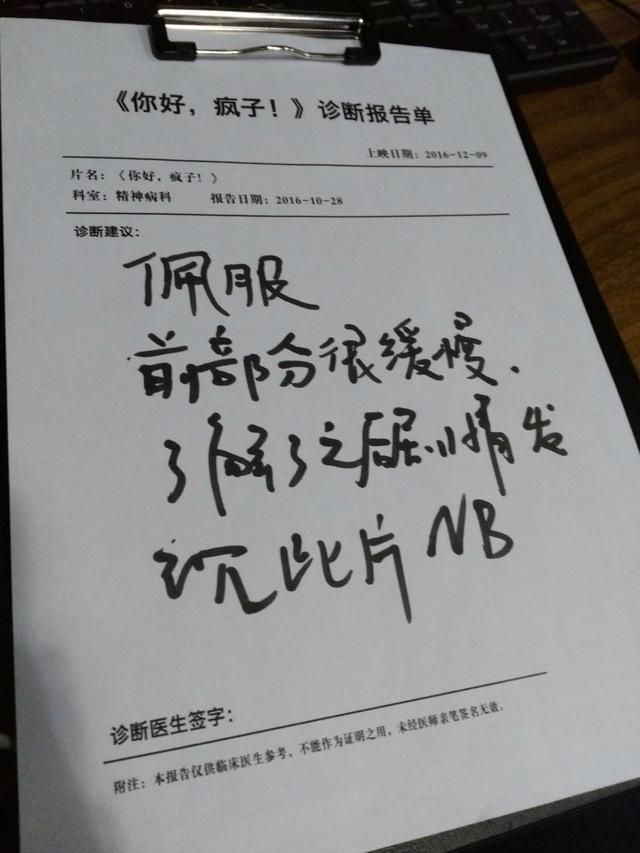 《你好，疯子！》诊断报告单
上映日期：2016-12-09
片名：《你好，疯子！》
科室：精神病科 报告日期：2016-10-28
诊断建议：
佩服
前部份很缓慢.
了解了之后剧情发
现此片NB
诊断医生签字：
附注：本报告仅供临床医生参考，不能作为证明之用，未经医师亲笔签名无效。